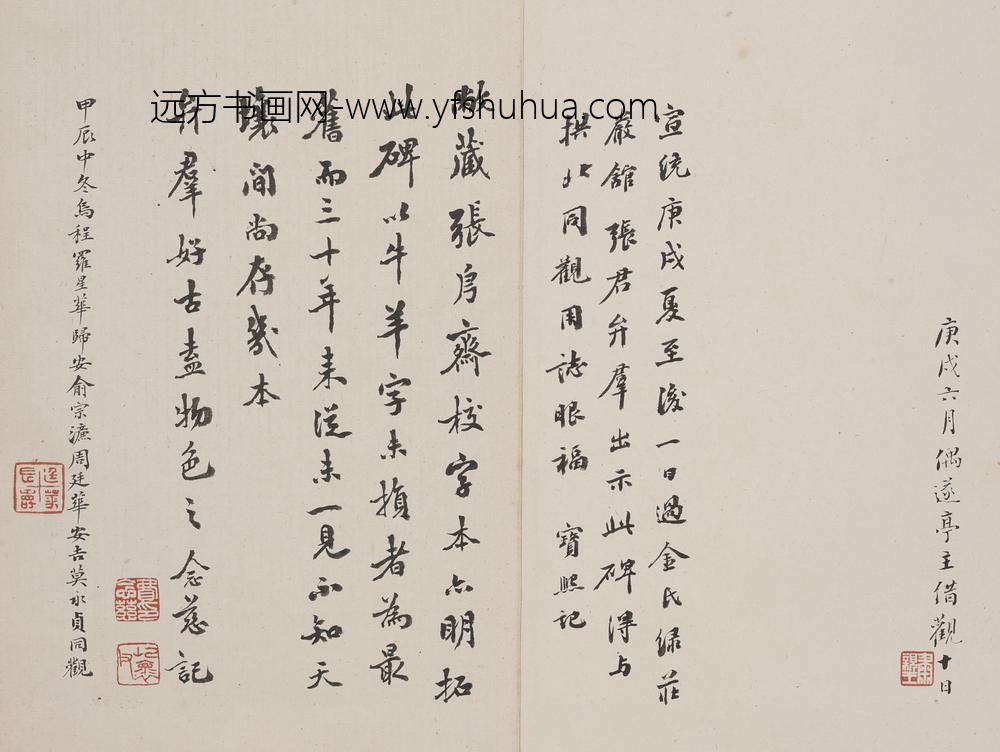 庚戌六月偶遂亭主借觀十日
宣統庚戌夏至後一日過金氏绿莊
嚴舘張君弁羣出示此碑得与
拱北同觀用誌眼福 寶熙記
藏張叔齋校字本亦明拓
此碑以牛羊字未損者為最
舊而三十年来從未一見不知天
壤間尚存幾本
弁羣好古盍物色之念慈記
甲辰中冬烏程羅星華歸安俞宗濂周廷華安吉莫永貞同觀
廷華
長壽
費印
念慈
远方书画网-www.yfshuhua.com